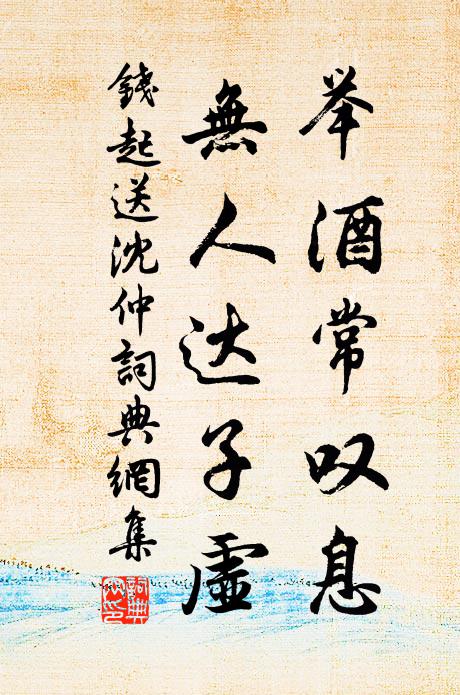 举酒常叹息
無人达子虛
錢起送沈仲詞典網集